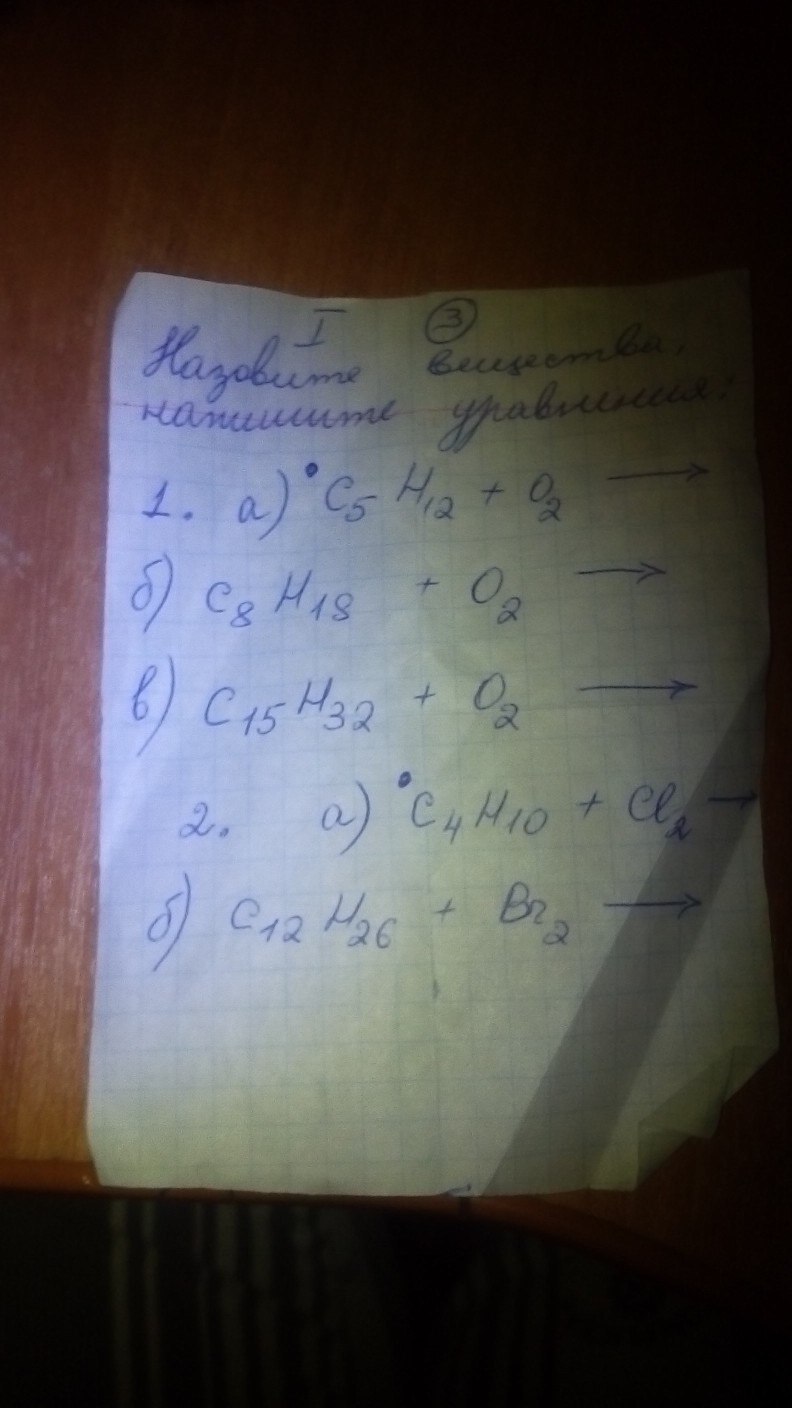 I ③
Назовите вещества,
напишите уравнения:
1. а) •C₅H₁₂ + O₂ →
б) C₈H₁₈ + O₂ →
в) C₁₅H₃₂ + O₂ →
2. а) •C₄H₁₀ + Cl₂ →
б) C₁₂H₂₆ + Br₂ →